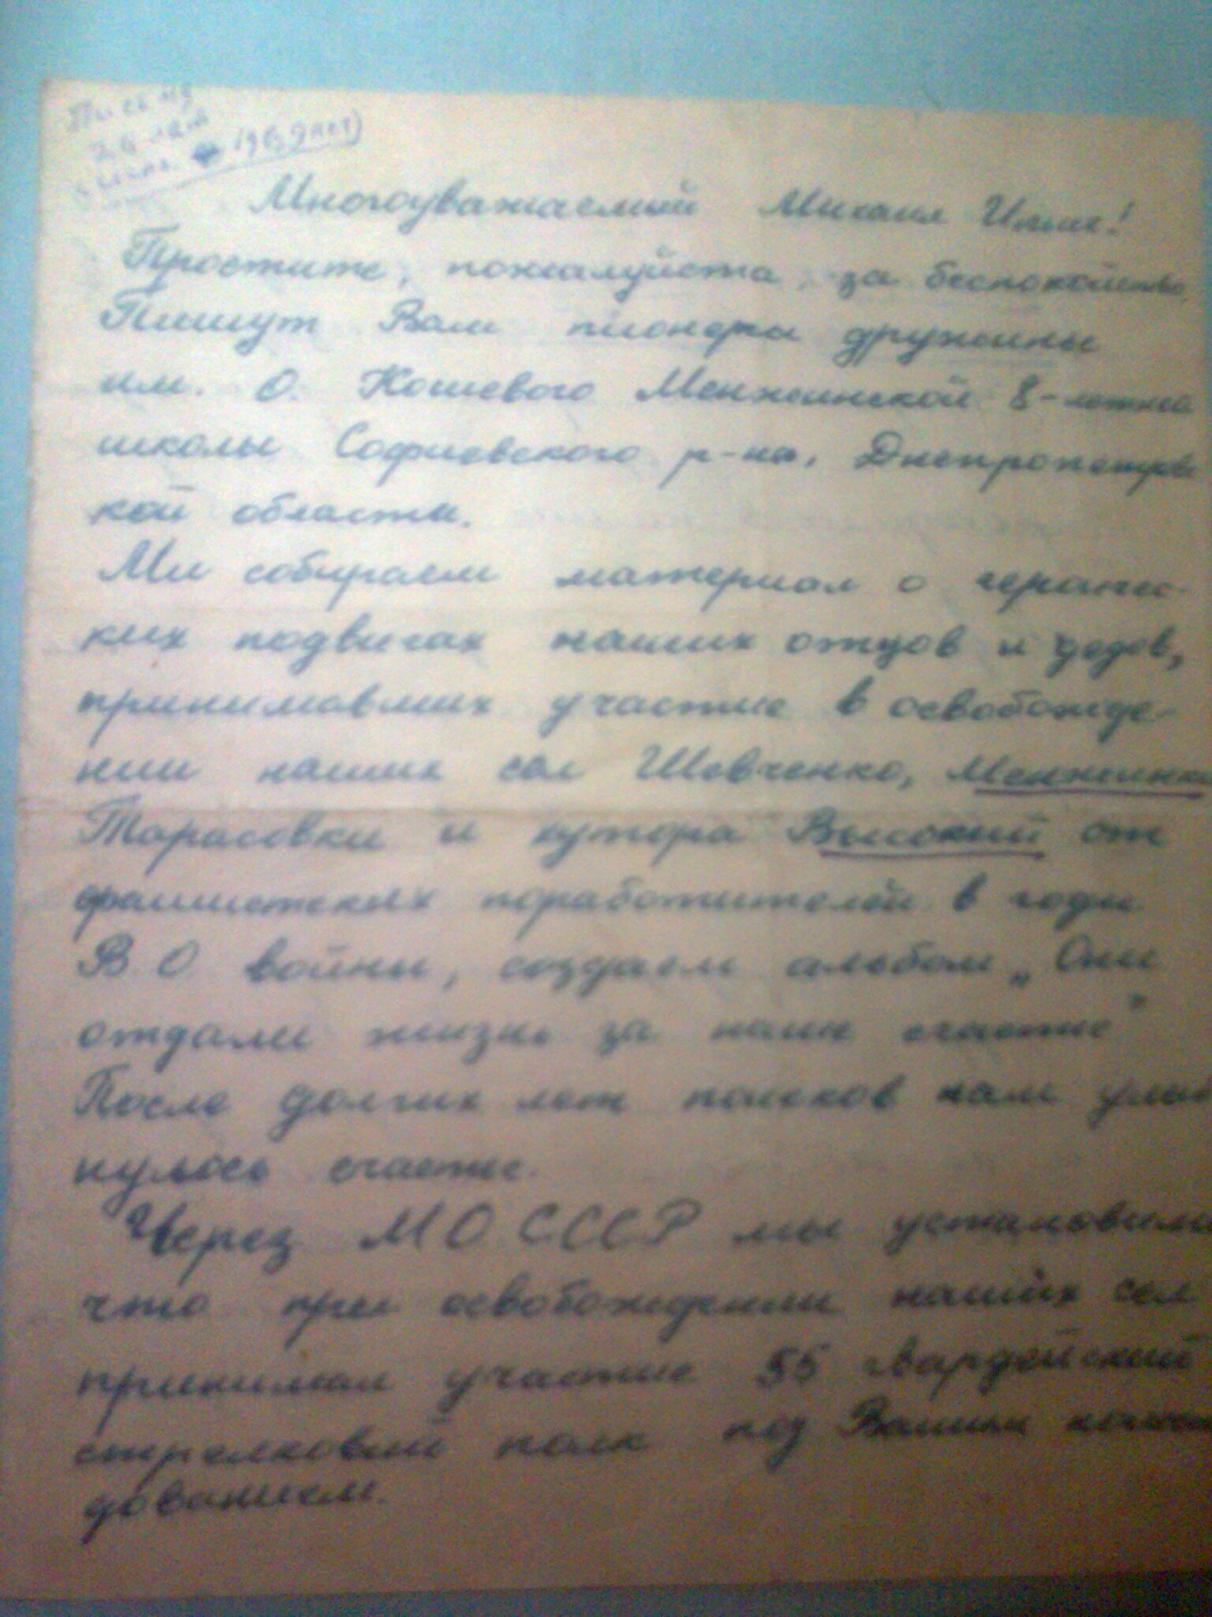 Письму
лет
Многоуважаемый Михаил Ильич!
Простите, пожалуйста, за беспокойство.
Пишут Вам пионеры дружины
им. О. Кошевого Менжинской 8-летней
школы Софиевского р-на, Днепропетровс
кой области.
Ми собираем материал о героичес-
ких подвигах наших отцов и дедов,
принимавших участие в освобожде-
нии наших сел Шевченко, Менжинки
Тарасовки и хутора Высокий от
фашистских поработителей в годы
В О войны, создаем альбом „Они
отдали жизнь за наше счастье"
После долгих лет поисков нам улыб
нулось счастье.
Через МО СССР мы установили
что при освобождении наших сел
принимал участие 55 гвардейский
стрелковый полк под Вашим коман
дованием.